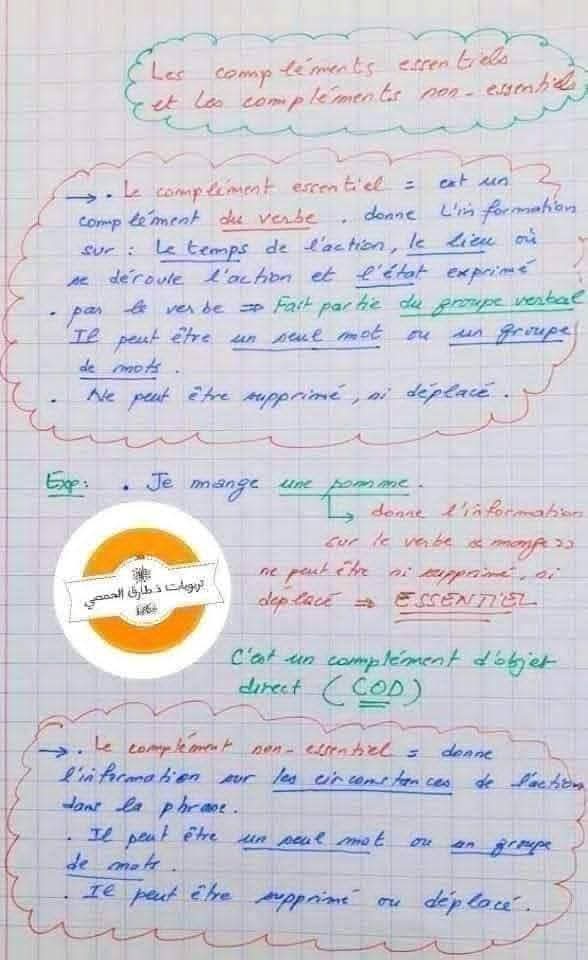 Les compléments essentiels
et les compléments non-essentiels
→ . Le complément essentiel = est un
complément du verbe . donne l'information
sur : Le temps de l'action, le lieu où
se déroule l'action et l'état exprimé
. par le verbe => Fait partie du groupe verbal
Il peut être un seul mot ou un groupe
de mots .
. Ne peut être supprimé, ni déplacé .
Exp: . Je mange une pomme .
↳ donne l'information
sur le verbe « mange »
ne peut être ni supprimé, ni
déplacé => ESSENTIEL
تربويات ذ طارق الحمصي
C'est un complément d'objet
direct (COD)
→ . Le complément non-essentiel = donne
l'information sur les circonstances de l'action
dans la phrase .
. Il peut être un seul mot ou un groupe
de mots .
. Il peut être supprimé ou déplacé .